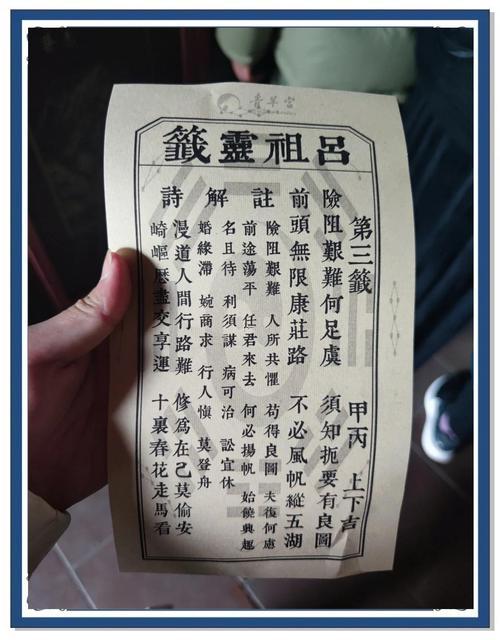 青羊宮
呂祖靈籤
第三籤 甲丙 上下吉
險阻艱難何足虞 須知扼要有良圖
前頭無限康莊路 不必風帆縱五湖
註解詩
險阻艱難 人所共懼 苟得良圖 夫復何慮
前途蕩平 任君來去 何必揚帆 始饒興趣
名且待 利須謀 病可治 訟宜休
婚緣滯 婉商求 行人愼 莫登舟
漫道人間行路難 修為在己莫偷安
崎嶇歷盡交享運 十裏春花走馬看